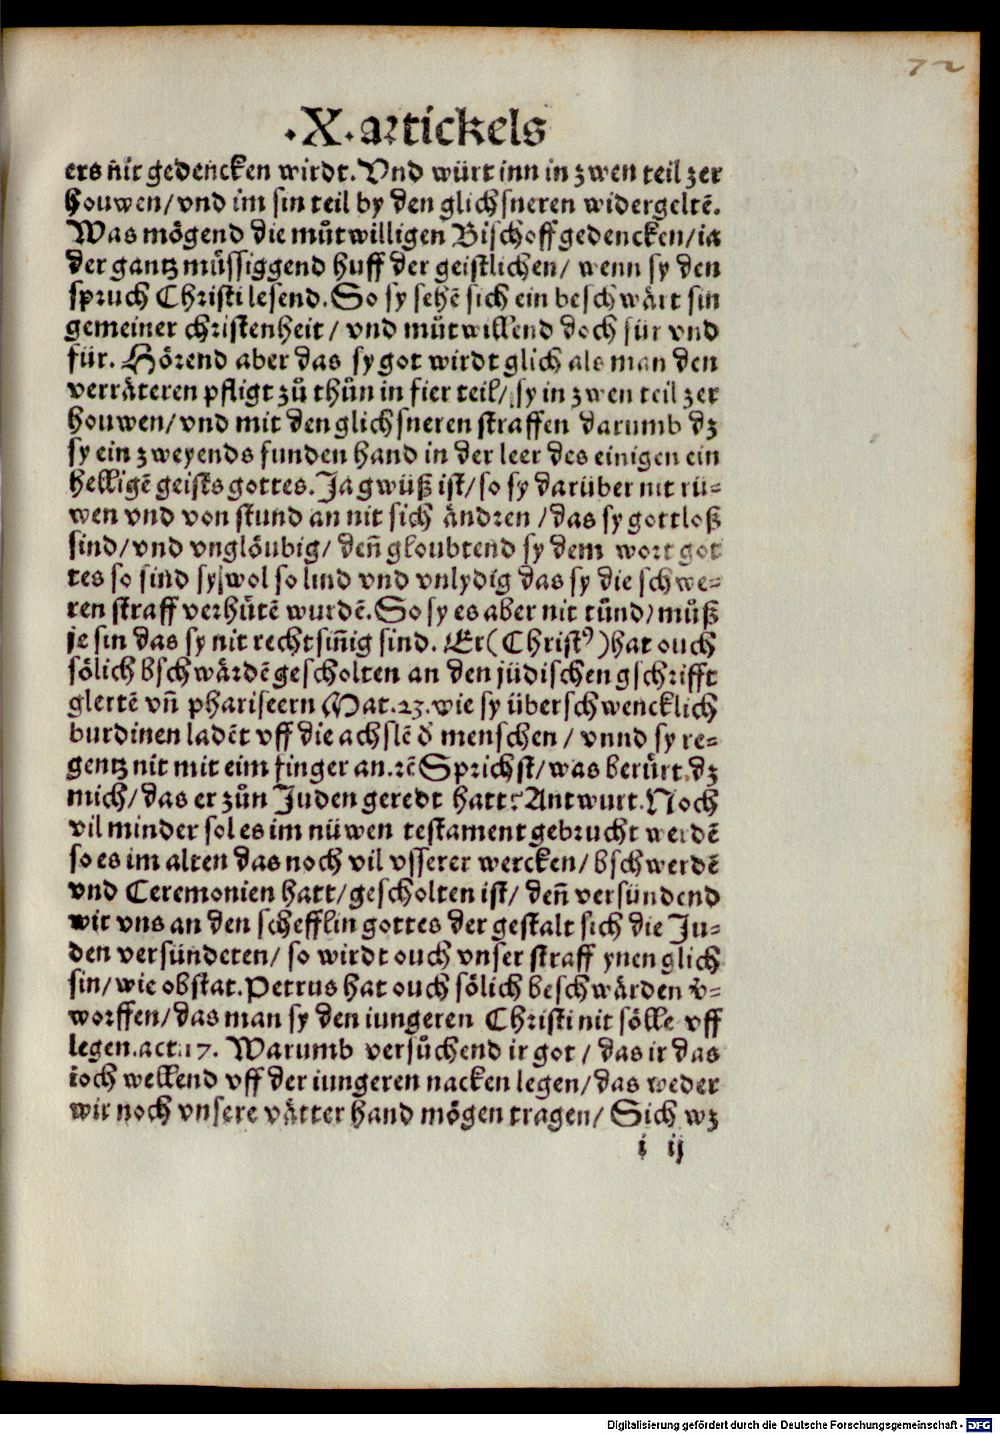 72
·X·artickels
ers nit gedencken wirdt. Vnd würt inn in zwen teil zer
houwen/ vnd im sin teil by den glichsneren widergeltē.
Was mögend die můtwilligen Bischoff gedencken/ ia
der gantz müssiggend huff der geistlichen/ wenn sy den
spruch Christi lesend. So sy sehē sich ein beschwärt sin
gemeiner christenheit/ vnd můtwillend doch für vnd
für. Hörend aber das sy got wirdt glich als man den
verräteren pfligt zů thůn in fier teil/ sy in zwen teil zer
houwen/ vnd mit den glichsneren straffen darumb dz
sy ein zweyends funden hand in der leer des einigen ein
helligē geists gottes. Ja gwüß ist/ so sy darüber nit rü-
wen vnd von stund an nit sich ändren/ das sy gottloß
sind/ vnd vnglöubig/ deñ gloubtend sy dem wort got
tes so sind sy wol so lind vnd vnlydig das sy die schwe-
ren straff verhůtē wurdē. So sy es aber nit tůnd/ můß
je sin das sy nit rechtsiñig sind. Er (Christꝰ) hat ouch
sölich bschwärdē gescholten an den jüdischen gschrifft
glertē vñ phariseern Mat. 23. wie sy überschwencklich
burdinen ladēt vff die achslē d̕ menschen/ vnnd sy re-
gentz nit mit eim finger an. ꝛē Sprichst/ was berürt dz
mich/ das er zůn Juden geredt hatt? Antwurt. Noch
vil minder sol es im nüwen testament gebrucht werdē
so es im alten das noch vil vsserer wercken/ bschwerdē
vnd Ceremonien hatt/ gescholten ist/ deñ versündend
wir vns an den schefflin gottes der gestalt sich die Ju-
den versündeten/ so wirdt ouch vnser straff ynen glich
sin/ wie obstat. Petrus hat ouch sölich beschwärden v̕-
worffen/ das man sy den iungeren Christi nit sölle vff
legen. act. 17. Warumb versůchend ir got/ das ir das
ioch wellend vff der iungeren nacken legen/ das weder
wir noch vnsere vätter hand mögen tragen/ Sich wz
i ij
Digitalisierung gefördert durch die Deutsche Forschungsgemeinschaft - DFG